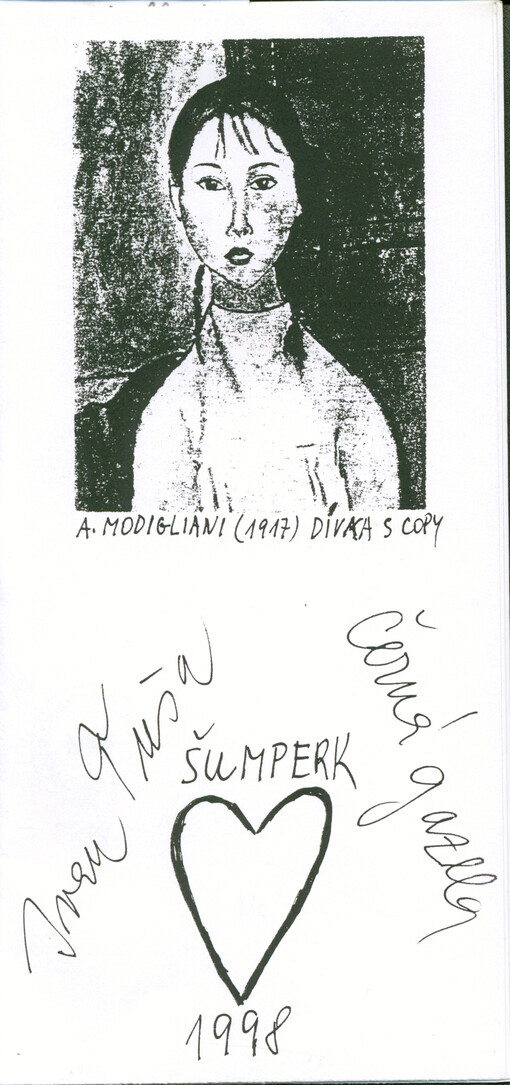 A. MODIGLIANI (1917) DÍVKA S COPY
Ivan a Růša
ŠUMPERK
černá gazella
1998